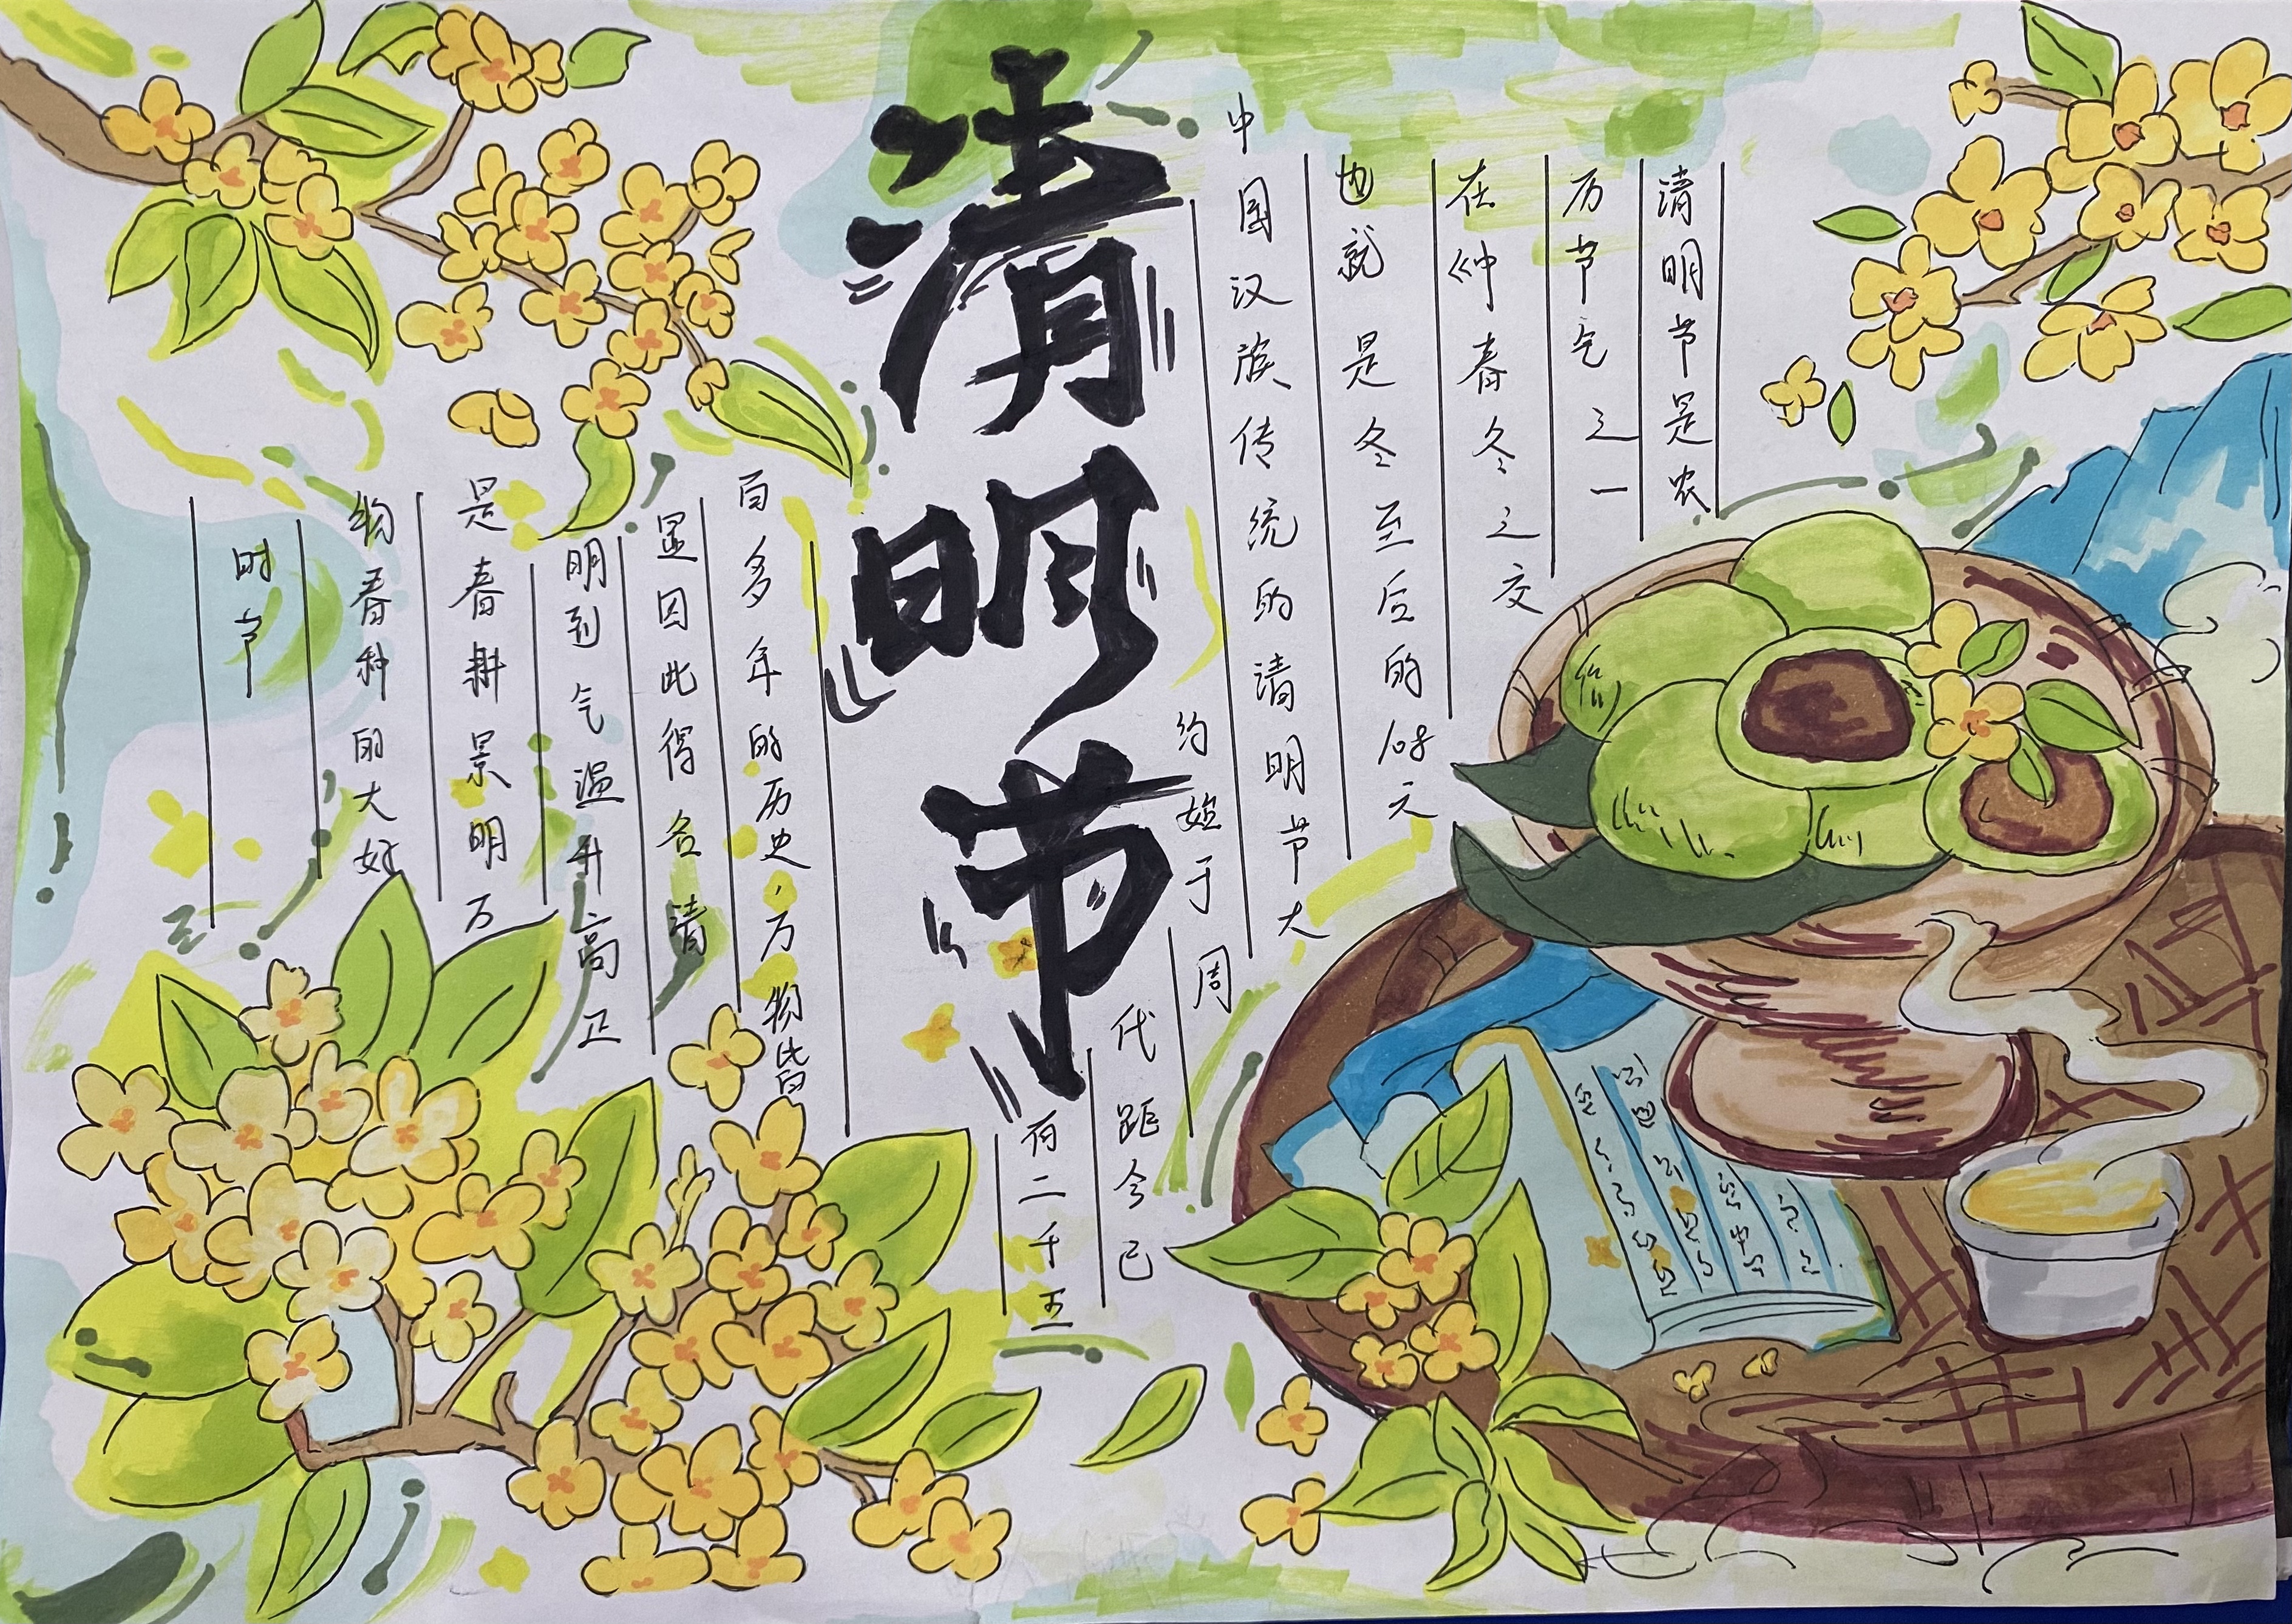 清明节
清明节是农
历节气之一
在仲春冬之交
也就是冬至后的108元
中国汉族传统的清明节大
约始于周
代距今已
有二千五
百多年的历史,万物皆
显因此得名清
明到气温升高正
是春耕景明万
物春种的大好
时节